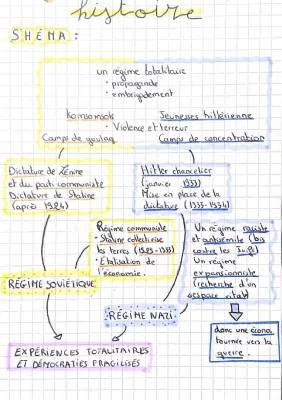 histoire
SHÉMA :
un régime totalitaire
• propagande
• embrigadement
Komsomols
Jeunesses hitlérienne
• Violence et terreur
Camps de goulag
Camps de concentration
Dictature de Lénine
et du parti communiste
Dictature de Staline
(après 1924)
Hitler chancelier
(janvier 1933)
Mise en place de la
dictature (1933-1934)
Régime communiste
• Staline collectivise
les terres (1929-1933)
• Étatisation de
l'économie.
Un régime raciste
et antisémite (lois
contre les Juifs)
Un régime
expansionniste
(recherche d'un
espace vital)
RÉGIME SOVIÉTIQUE
RÉGIME NAZI
donc une écono.
tournée vers la
guerre.
EXPÉRIENCES TOTALITAIRES
ET DÉMOCRATIES FRAGILISÉS